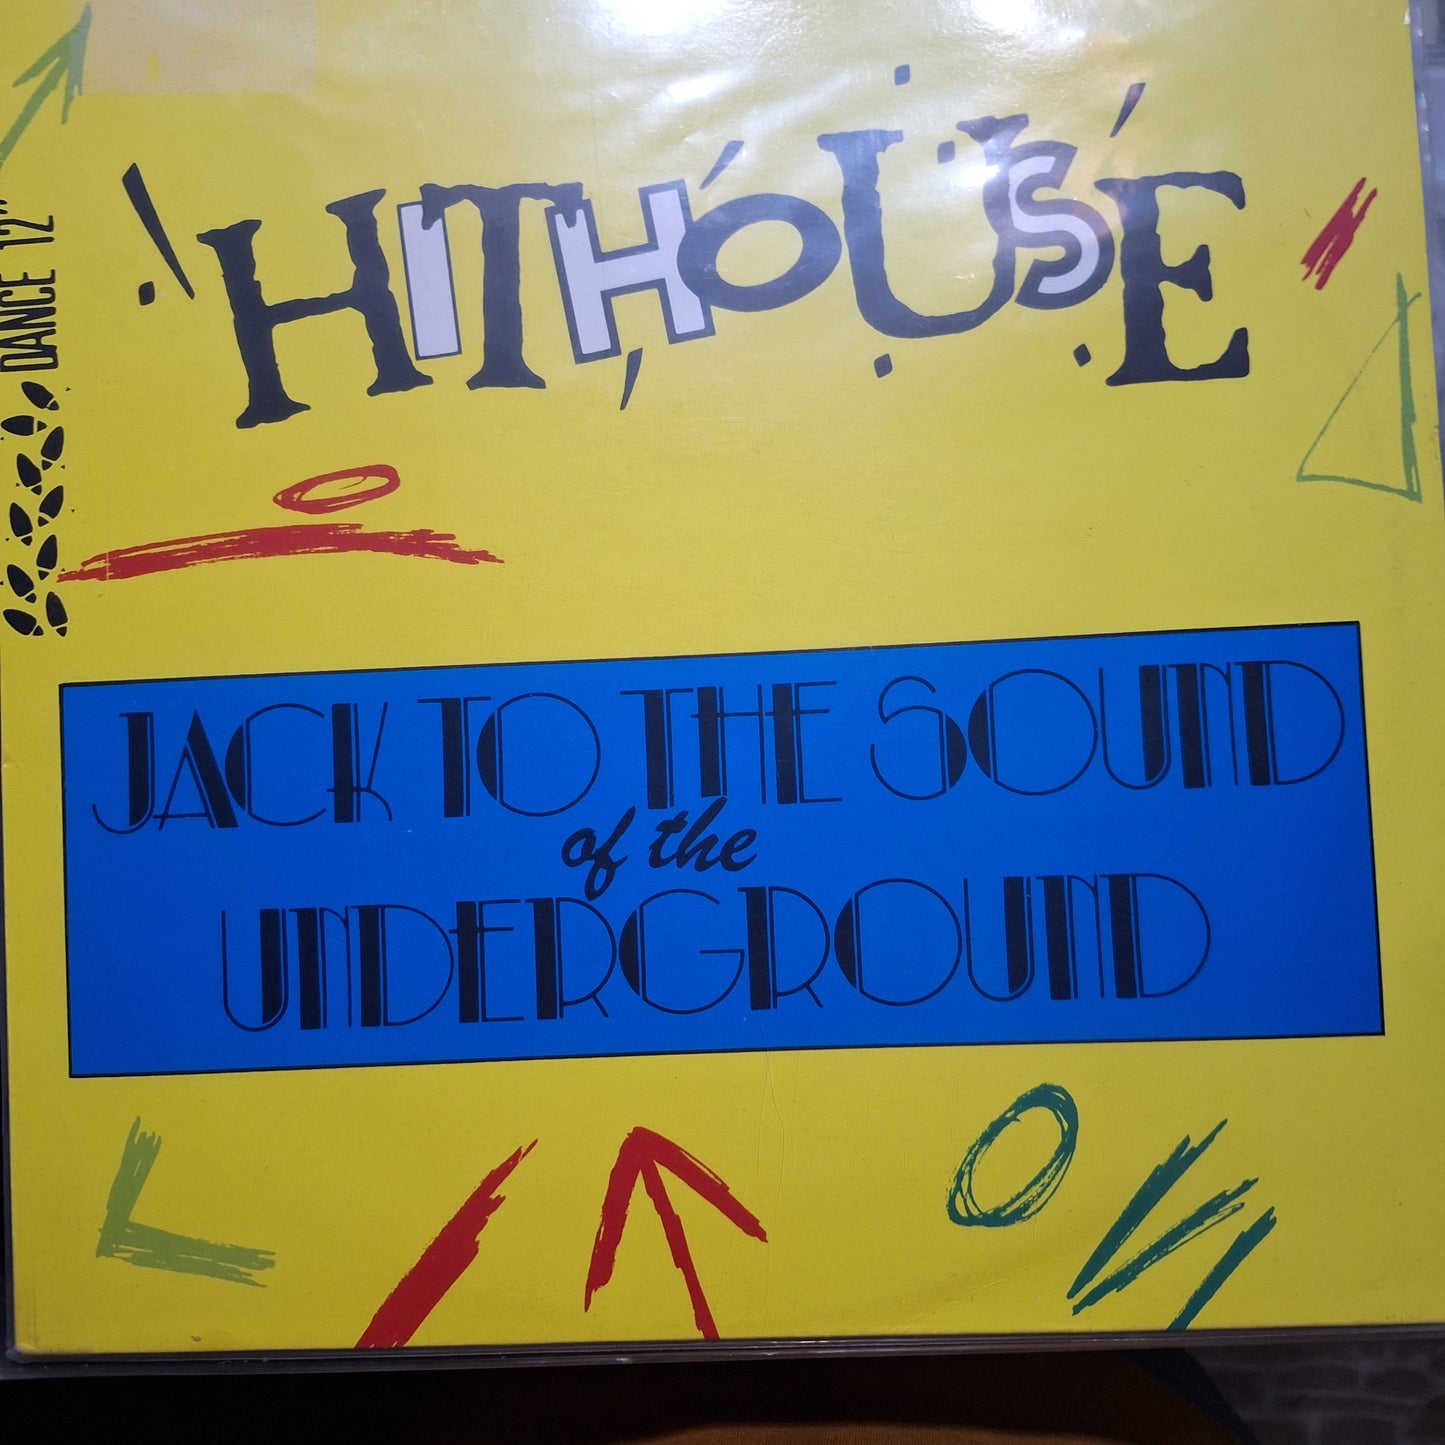 DANCE 12"
HITHOUSE
JACK TO THE SOUND
of the
UNDERGROUND